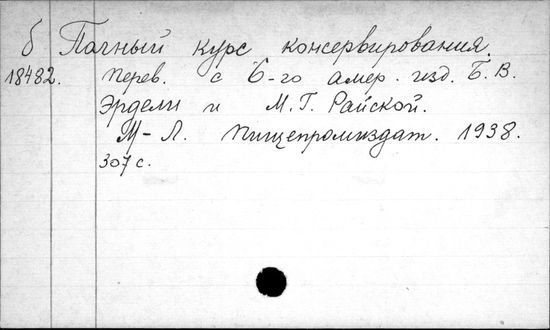 б Полный курс консервирования.
18482. Перев. с 6-го амер. изд. Б. В.
Эрдели и М. Г. Райской.
М-Л. Пищепромиздат. 1938.
307 с.